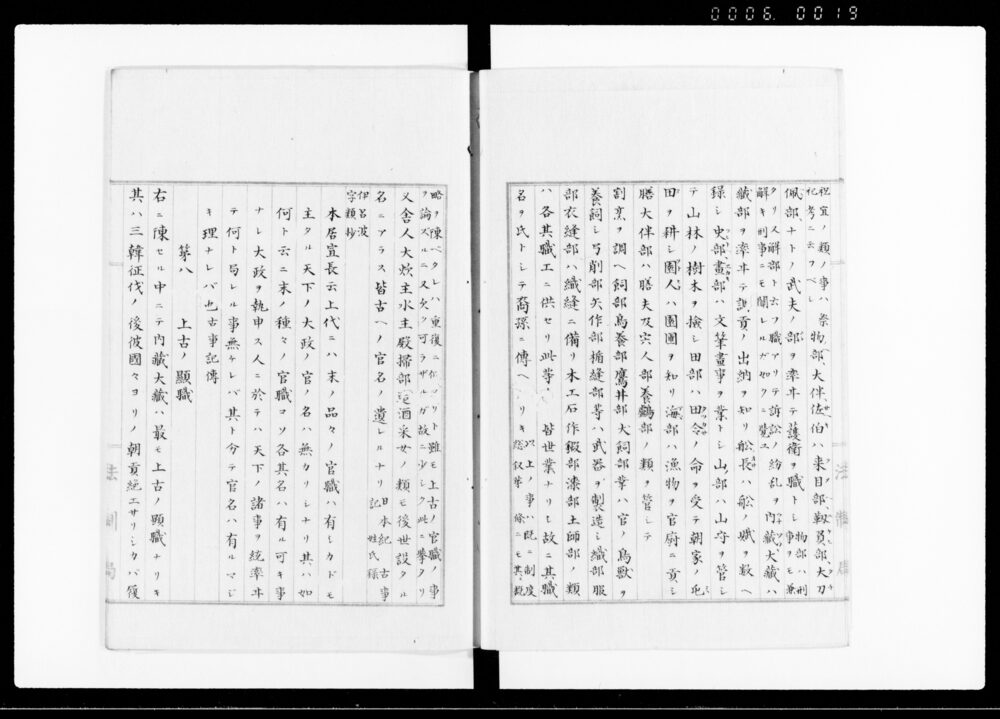 0006. 0019
祝宜ノ類ノ事ハ祭
祀考ニ云フベシ
物部大伴佐伯ハ来目部靱負部大刀
佩部ナトノ武夫ノ部ヲ率ヰテ護衛ヲ職トシ
物部ハ刑
事ヲモ兼
タリ又解部ト云フ職アリテ訴訟ノ紛乱ヲ
解キ刑事ニモ関レルガ如ク見ユ
内藏大藏ハ
藏部ヲ率ヰテ調貢ノ出納ヲ知リ船長ハ船ノ賦ヲ数ヘ
錄シ史部畫部ハ文筆畫事ヲ業トシ山部ハ山守ヲ管シ
テ山林ノ樹木ヲ検シ田部ハ田令ノ命ヲ受テ朝家ノ屯
田ヲ耕シ園人ハ園圃ヲ知リ海部ハ漁物ヲ官廚ニ貢シ
膳大伴部ハ膳夫及宍人部養鶴部ノ類ヲ管シテ
割烹ヲ調ヘ飼部鳥養部鷹井部犬飼部等ハ官ノ鳥獣ヲ
養飼シ弓削部矢作部楯縫部等ハ武器ヲ製造シ織部服
部衣縫部ハ織縫ニ備リ木工石作鍜部漆部土師部ノ類
ハ各其職工ニ供セリ此等ハ皆世業ナリシ故ニ其職
名ヲ氏トシテ裔孫ニ傳ヘタリキ
以上ノ事ハ既ニ制度
総叙第 條ニモ其ノ概
略ヲ陳ベタレハ重複ニ似タリト雖モ上古ノ官職ノ事
ヲ論ズルニ又欠ク可ラザルガ故ニ少シク此ニ挙タリ
又舎人大炊主水主殿掃部造酒采女ノ類モ後世設タル
名ニアラス皆古ヘノ官名ノ遺レルナリ
日本紀 古事
記 姓氏錄
伊呂波
字類抄
本居宣長云上代ニハ末ノ品々ノ官職ハ有シカドモ
主タル天下ノ大政ノ官ノ名ハ無カリシナリ其ハ如
何ト云ニ末ノ種々ノ官職コソ各其名ハ有ル可キ事
ナレ大政ヲ執申ス人ニ於テハ天下ノ諸事ヲ統率ヰ
テ何ト局レル事無ケレバ其ト分テ官名ハ有ルマジ
キ理ナレバ也古事記傳
第八 上古ノ顕職
右ニ陳セル中ニテ内藏大藏ハ最モ上古ノ顕職ナリキ
其ハ三韓征伐ノ後彼國々ヨリノ朝貢絶エサリシカバ履